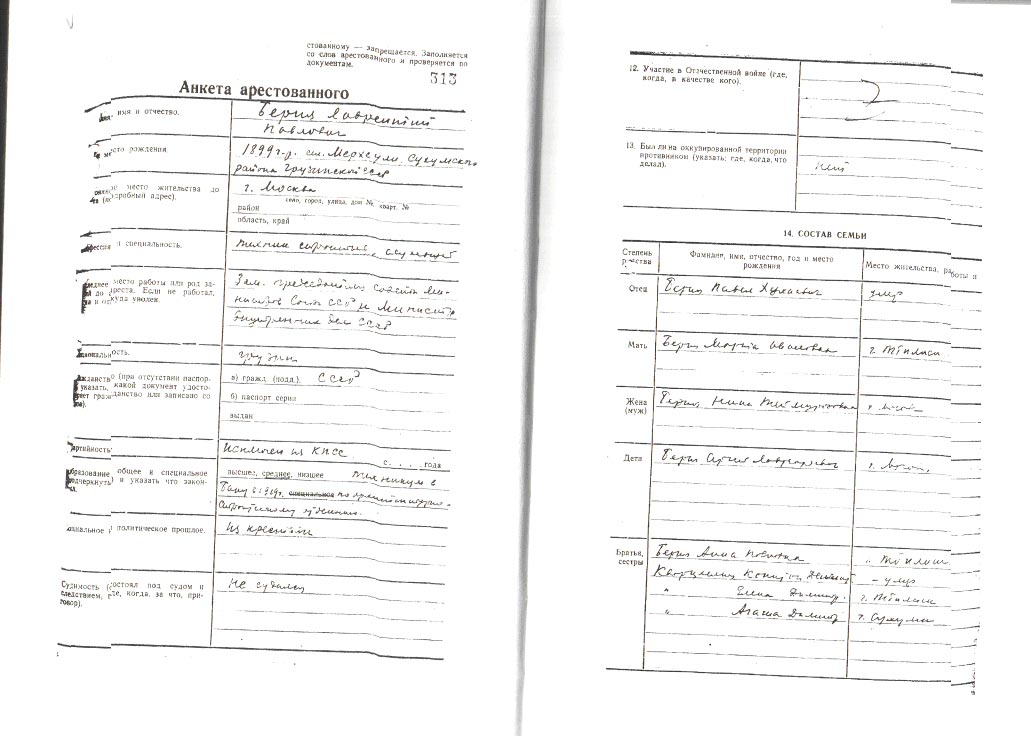 стованному — запрещается. Заполняется
со слов арестованного и проверяется по
документам.
313
Анкета арестованного
имя и отчество.
Берия Лаврентий
Павлович
место рождения
1899 г.р. сел. Мерхеули Сухумского
района Грузинской ССР
место жительства до
(подробный адрес).
г. Москва
село, город, улица, дом №, кварт. №
район
область, край
и специальность.
техник строитель,
место работы или род за-
до ареста. Если не работал,
и откуда уволен.
Зам. председателя Совета Ми-
нистров Союза ССР и Министр
внутренних дел СССР
грузин
(при отсутствии паспор-
указать, какой документ удосто-
гражданство или записано со
а) гражд. (подд.). СССР
б) паспорт серия
выдан
партийность
Исключен из КПСС
с . . . . года
образование общее и специальное
(подчеркнуть) и указать что закон-
высшее, среднее, низшее техникум в
Баку в 1919 г. специальное по архитектурно-
строительному отделению.
социальное и политическое прошлое.
Из крестьян
Судимость (состоял под судом и
следствием, где, когда, за что, при-
говор).
Не судился
12. Участие в Отечественной войне (где,
когда, в качестве кого).
13. Был ли на оккупированной территории
противником (указать: где, когда, что
делал).
нет
14. СОСТАВ СЕМЬИ
Степень
родства
Фамилия, имя, отчество, год и место
рождения
Место жительства, работы и
Отец
Берия Павел Хухаевич
умер
Мать
Берия Марта Ивановна
г. Тбилиси
Жена
(муж)
Берия Нина Теймуразовна
г. Москва
Дети
Берия Сергей Лаврентьевич
г. Москва
Братья,
сестры
Берия Анна Павловна
г. Тбилиси
Кварцхелия
– умер
" Елена Дмитр.
г. Тбилиси
" Агаша Дмитр
г. Сухуми